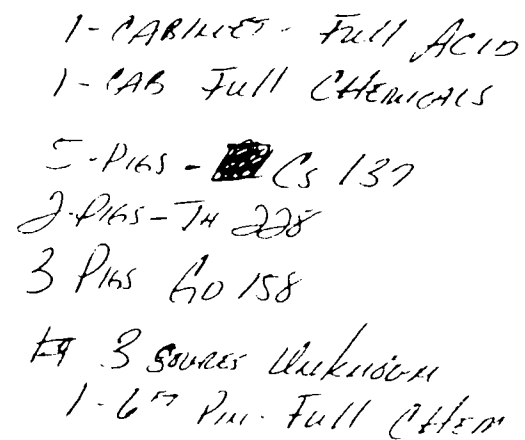 1-CABINET- Full ACID
1-CAB Full CHEMICALS
5-PIGS- Cs 137
2-PIGS-TH 228
3 PIGS GD 158
3 sources Unknown
1-6" Full CHEM